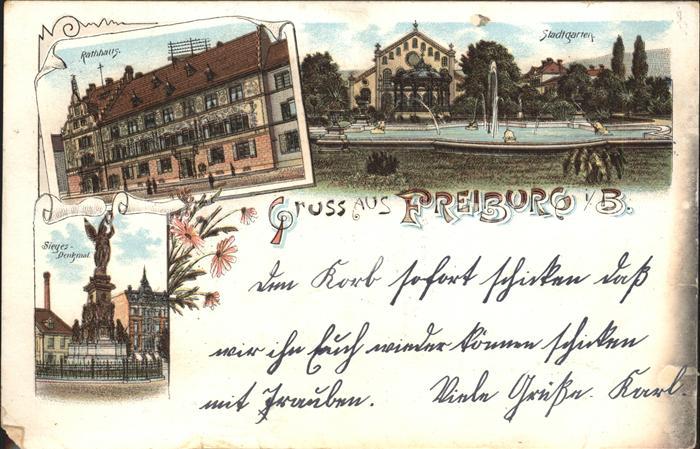 Rathhaus.
Stadtgarten.
Gruss aus Freiburg i/B.
Sieges-
Denkmal.
Den Korb sofort schicken daß
wir ihn Euch wieder können schicken
mit Trauben. Viele Grüße. Karl.